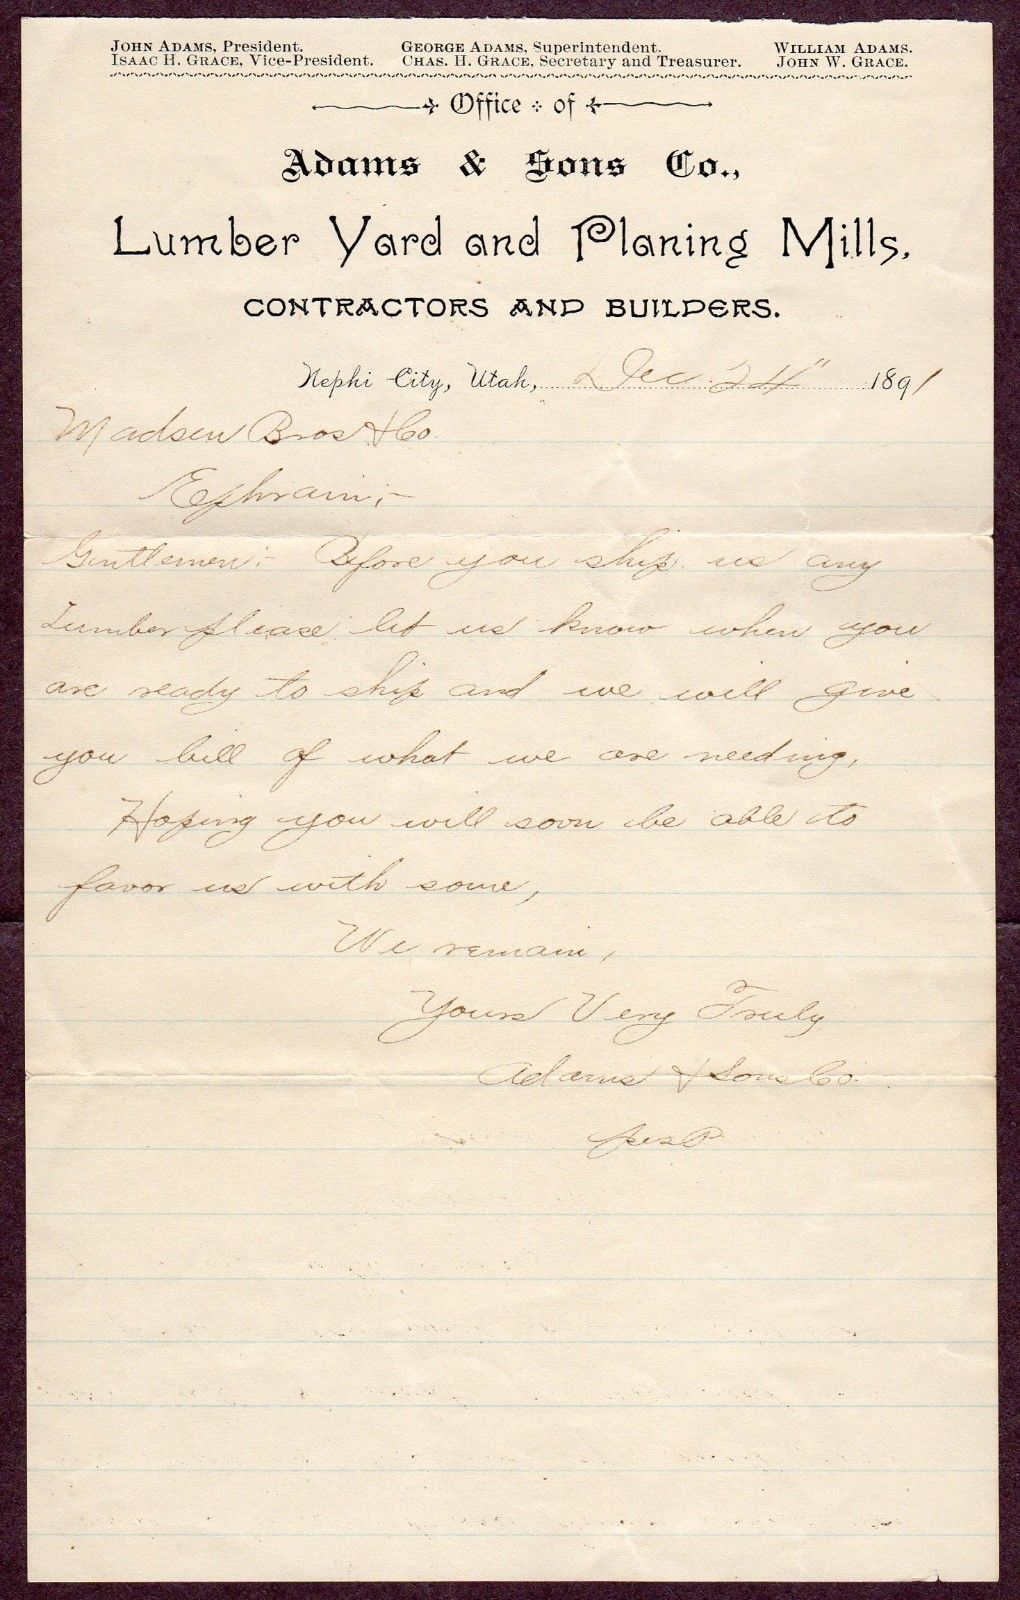 JOHN ADAMS, President. GEORGE ADAMS, Superintendent. WILLIAM ADAMS.
ISAAC H. GRACE, Vice-President. CHAS. H. GRACE, Secretary and Treasurer. JOHN W. GRACE.
Office of
Adams & Sons Co.,
Lumber Yard and Planing Mills,
CONTRACTORS AND BUILDERS.
Nephi City, Utah, Dec. 24" 1891
Madsen Bros & Co.
Ephraim;-
Gentlemen:- Before you ship us any
Lumber please let us know when you
are ready to ship and we will give
you bill of what we are needing,
Hoping you will soon be able to
favor us with some,
We remain,
Yours Very Truly
Adams & Sons Co.
per P